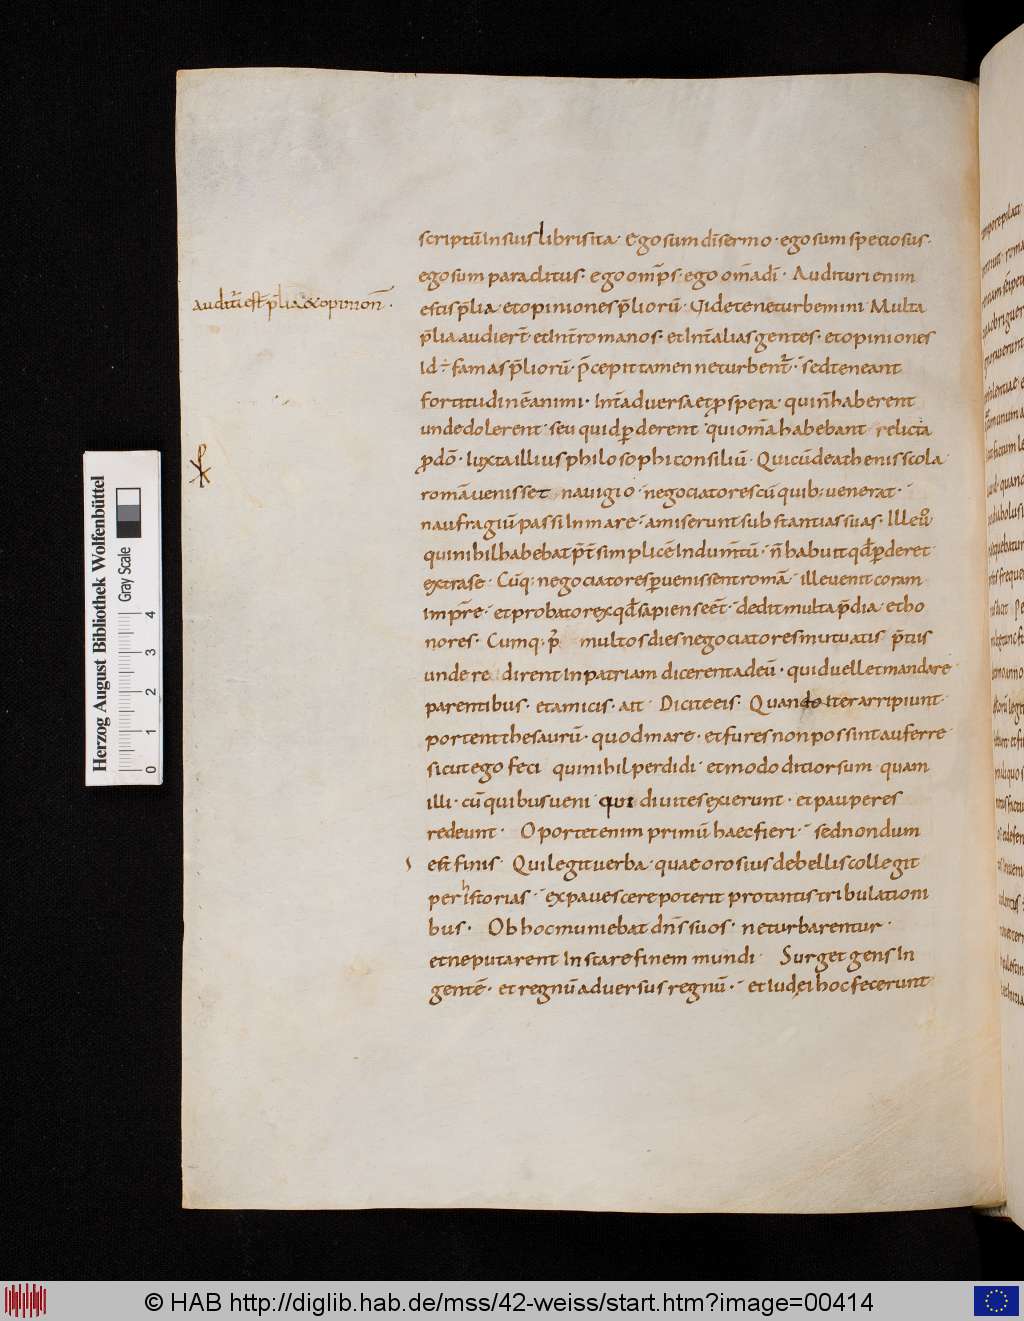 scriptū in suis libris ita· Ego sum dī sermo· ego sum speciosus·
ego sum paraclitus· ego omīps· ego om̄a dī· Audituri enim
auditūr est p̄lia & opinion̄·
estis p̄lia· et opiniones p̄liorū· Videte ne turbemini Multa
p̄lia audier̄t· et int̄ romanos· et int̄ alias gentes· et opiniones
Id ÷ famas p̄liorū· p̄cepit tamen ne turbent̄r· sed teneant
fortitudinē animi· Int̄ adversa et p̄spera· qui n̄ haberent
unde dolerent· seu quid p̄derent qui om̄a habebant relicta
p̄ dō· Iuxta illius philosophi consiliū· Qui cū de athenis scola
romā venisset navigio· negociatores cū quib; venerat·
naufragiū passi In mare· amiserunt substantias suas· Ille ū
qui nihil habebat p̄t̄ simplicē Indum̄tū· n̄ habuit qđ p̄deret
extra se· Cūq· negociatores p̄venissent romā· ille venit coram
imp̄re· et probato rex qđ sapiens eēt· dedit multa p̄dia et ho
nores· Cumq· p̄ multos dies negociatores mutuatis p̄tiis
unde re dirent In patriam dicerent ad eū· quid vellet mandare
parentibus· et amicis· ait Dicite eis· Quando iter arripiunt·
portent thesaurū· quod mare· et fures non possint auferre
sicut ego feci qui nihil perdidi· et modo ditior sum quam
illi· cū quibus veni qui divites exierunt· et pauperes
redeunt· Oportet enim primū haec fieri· sed nondum
est finis· Qui legit verba· quae orosius de bellis collegit
per historias· expavescere poterit pro tantis tribulationi
bus· Ob hoc muniebat dn̄s suos· ne turbarentur·
et ne putarent Instare finem mundi· Surget gens In
gentē· et regnū adversus regnū· et Iudęi hoc fecerunt
Herzog August Bibliothek Wolfenbüttel
Gray Scale
0 1 2 3 4
© HAB http://diglib.hab.de/mss/42-weiss/start.htm?image=00414